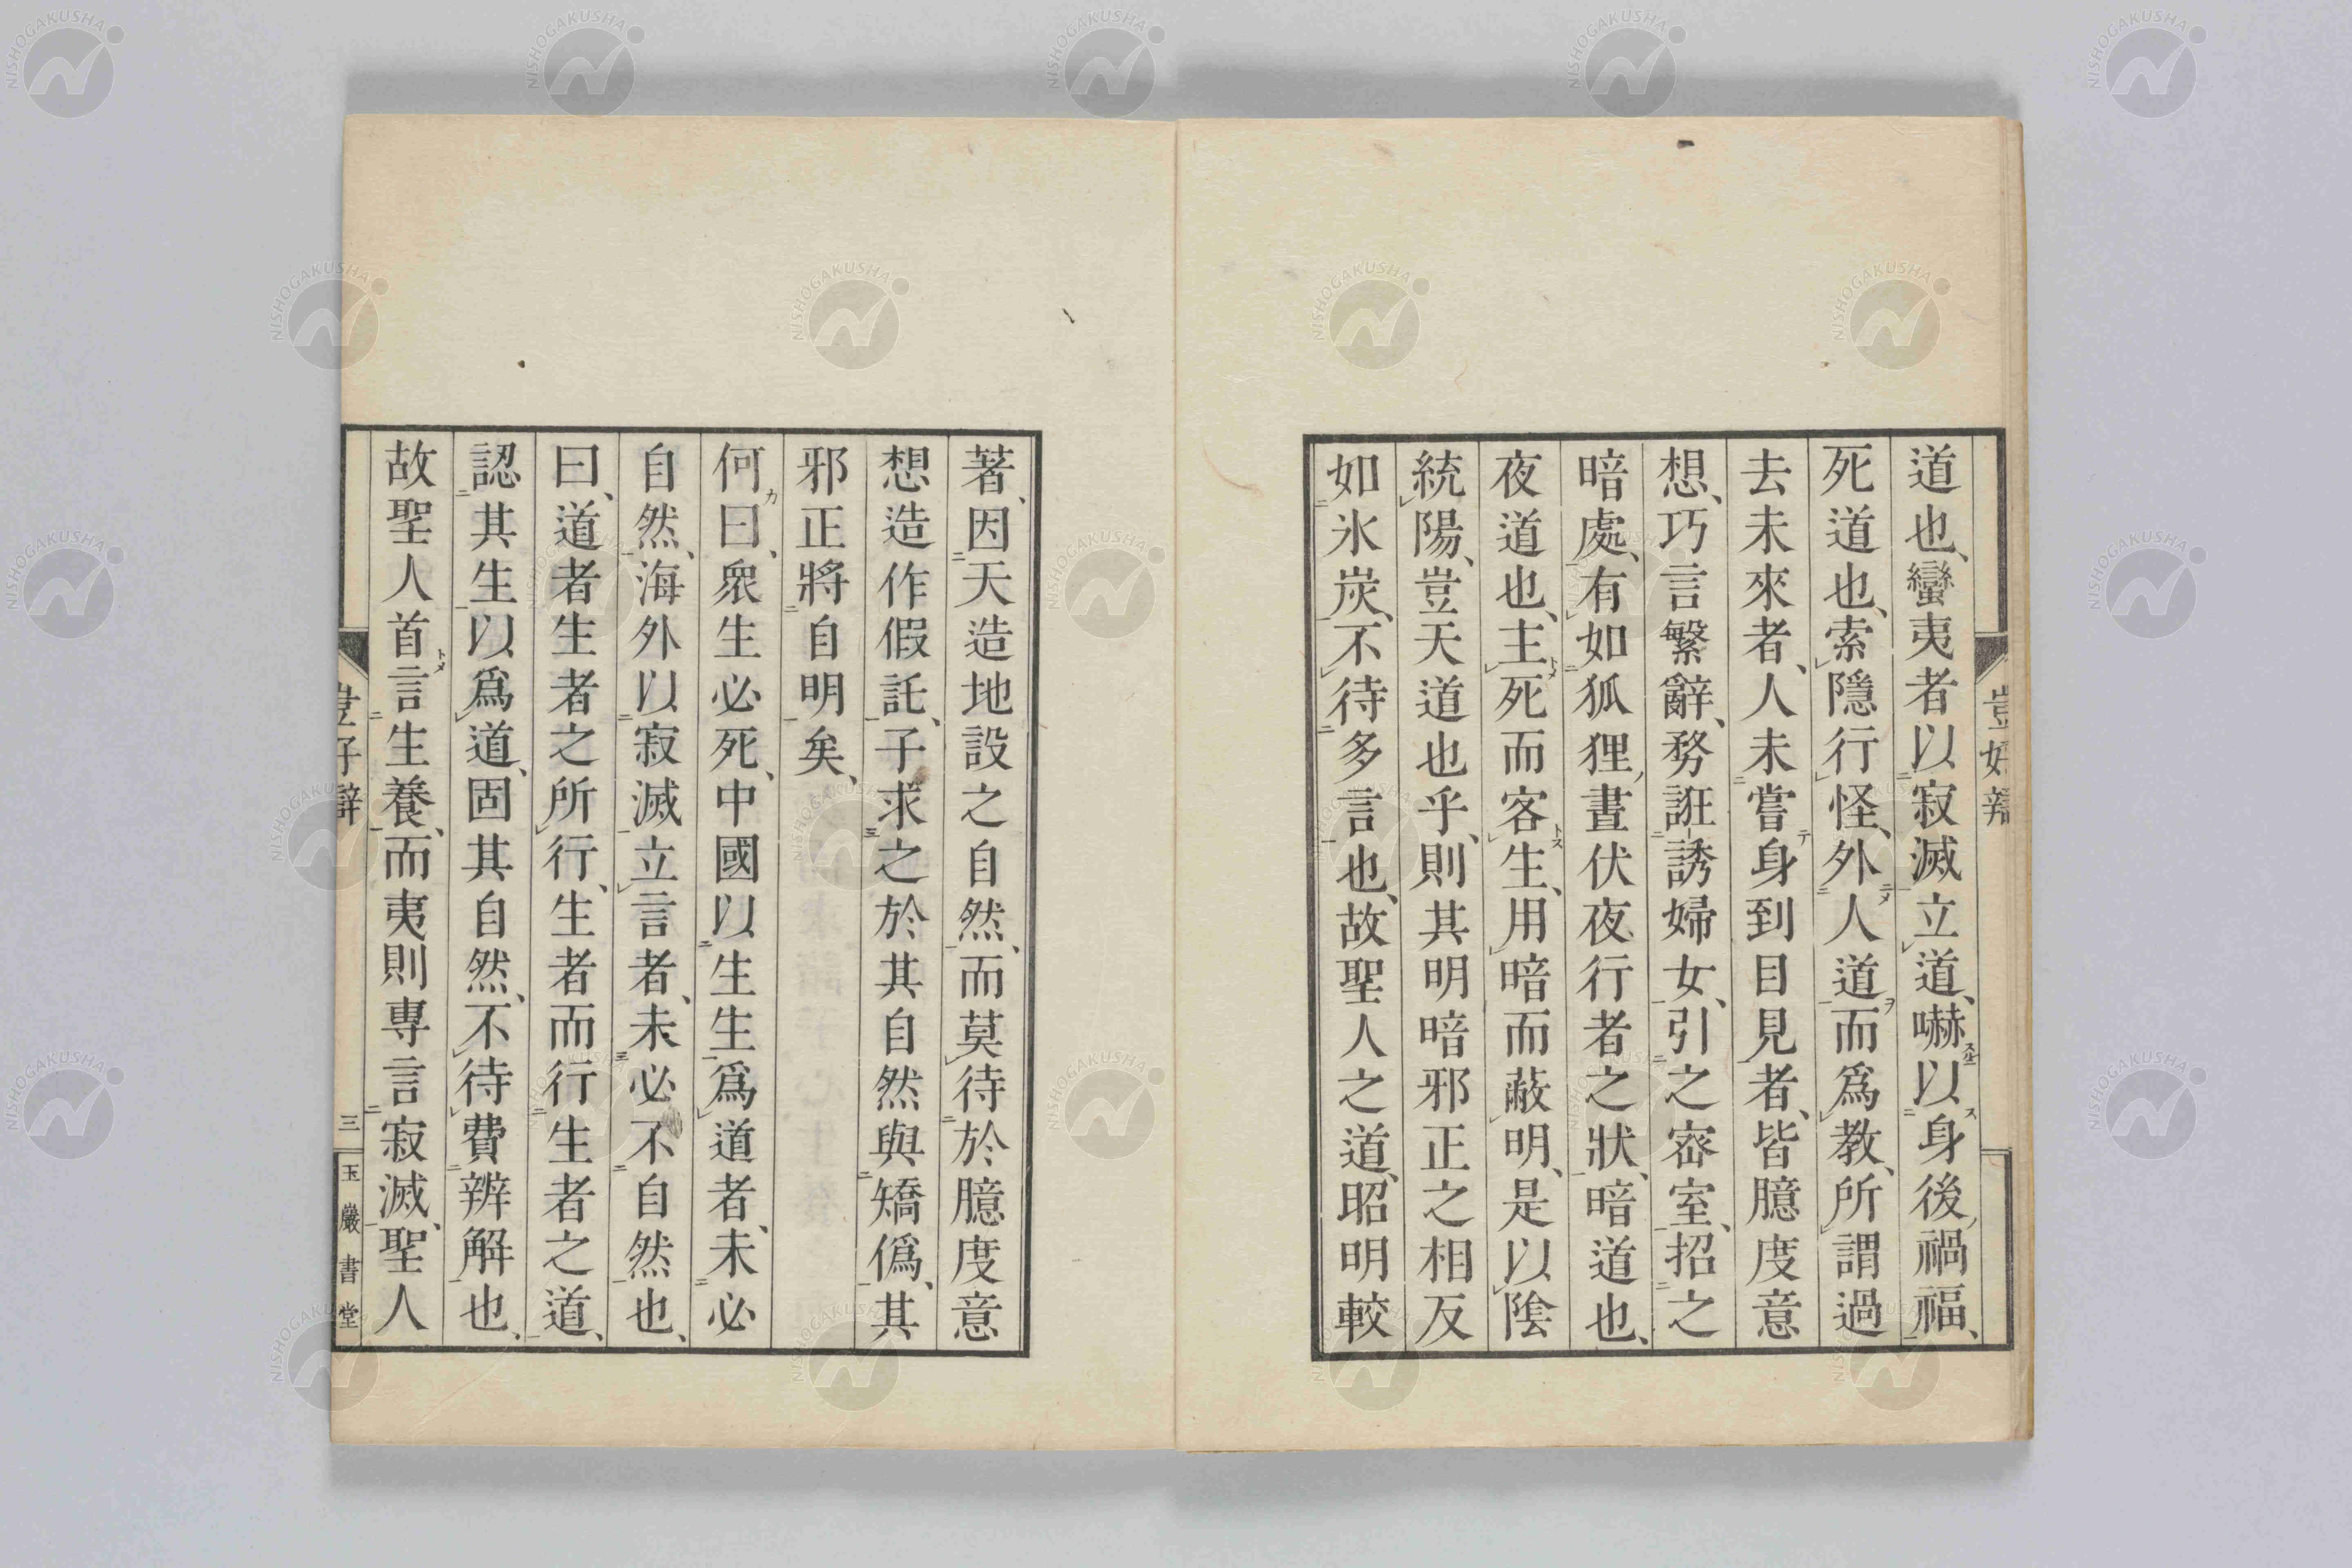 道也、蠻夷者以寂滅立道、嚇以身後禍福、
死道也、索隱行怪、外人道而爲教、所謂過
去未來者、人未嘗身到目見者、皆臆度意
想、巧言繁辭、務誑誘婦女、引之密室、招之
暗處、有如狐狸晝伏夜行者之狀、暗道也、
夜道也、主死而客生、用暗而蔽明、是以陰
統陽、豈天道也乎、則其明暗邪正之相反
如氷炭、不待多言也、故聖人之道、昭明較
著、因天造地設之自然、而莫待於臆度意
想造作假託、子求之於其自然與矯僞、其
邪正將自明矣、
何曰、衆生必死、中國以生生爲道者、未必
自然、海外以寂滅立言者、未必不自然也、
曰、道者生者之所行、生者而行生者之道、
認其生以爲道、固其自然、不待費辨解也、
故聖人首言生養、而夷則專言寂滅、聖人
三
玉巖書堂
NISHOGAKUSHA